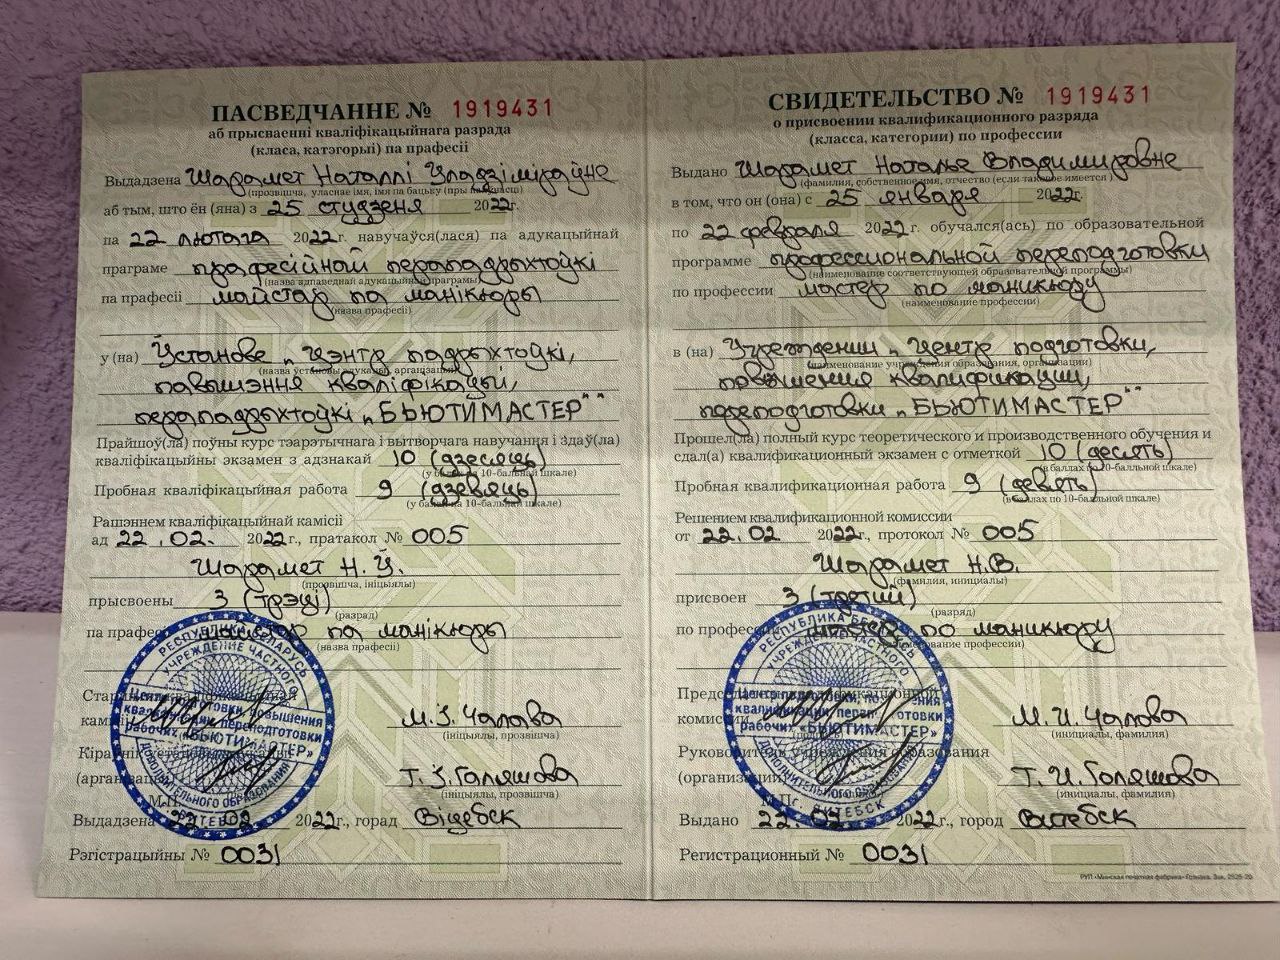 ПАСВЕДЧАННЕ № 1919431
аб прысваенні кваліфікацыйнага разрада
(класа, катэгорыі) па прафесіі
Выдадзена Шарамет Наталлі Уладзіміраўне
(прозвішча, уласнае імя, імя па бацьку (пры наяўнасці)
аб тым, што ён (яна) з 25 студзеня 2022г.
па 22 лютага 2022г. навучаўся(лася) па адукацыйнай
праграме прафесійнай перападрыхтоўкі
(назва адпаведнай адукацыйнай праграмы)
па прафесіі майстар па манікюры
(назва прафесіі)
у (на) Установе „Цэнтр падрыхтоўкі,
(назва ўстановы адукацыі, арганізацыі)
павышэння кваліфікацыі,
перападрыхтоўкі „БЬЮТИМАСТЕР““
Прайшоў(ла) поўны курс тэарэтычнага і вытворчага навучання і здаў(ла)
кваліфікацыйны экзамен з адзнакай 10 (дзесяць)
(у балах па 10-бальнай шкале)
Пробная кваліфікацыйная работа 9 (дзевяць)
(у балах па 10-бальнай шкале)
Рашэннем кваліфікацыйнай камісіі
ад 22.02. 2022г., пратакол № 005
Шарамет Н.Ў.
(прозвішча, ініцыялы)
прысвоены 3 (трэці)
(разрад)
па прафесіі майстар па манікюры
(назва прафесіі)
Старшыня кваліфікацыйнай
камісіі М.І. Чалова
(ініцыялы, прозвішча)
Кіраўнік установы
(арганізацыі) Т.І. Галяшова
(ініцыялы, прозвішча)
М.П.
Выдадзена 22.02 2022г., горад Віцебск
Рэгістрацыйны № 0031
РЕСПУБЛИКА БЕЛАРУСЬ
УЧРЕЖДЕНИЕ ЧАСТНОГО
Центр подготовки, повышения
квалификации, переподготовки
рабочих «БЬЮТИМАСТЕР»
ДОПОЛНИТЕЛЬНОГО ОБРАЗОВАНИЯ
ВИТЕБСК
СВИДЕТЕЛЬСТВО № 1919431
о присвоении квалификационного разряда
(класса, категории) по профессии
Выдано Шарамет Наталье Владимировне
(фамилия, собственное имя, отчество (если таковое имеется)
в том, что он (она) с 25 января 2022г.
по 22 февраля 2022г. обучался(ась) по образовательной
программе профессиональной переподготовки
(наименование соответствующей образовательной программы)
по профессии мастер по маникюру
(наименование профессии)
в (на) Учреждении „Центр подготовки,
(наименование учреждения образования, организации)
повышения квалификации,
переподготовки „БЬЮТИМАСТЕР““
Прошел(ла) полный курс теоретического и производственного обучения и
сдал(а) квалификационный экзамен с отметкой 10 (десять)
(в баллах по 10-балльной шкале)
Пробная квалификационная работа 9 (девять)
(в баллах по 10-бальной шкале)
Решением квалификационной комиссии
от 22.02 2022г., протокол № 005
Шарамет Н.В.
(фамилия, инициалы)
присвоен 3 (третий)
(разряд)
по профессии мастер по маникюру
(наименование профессии)
Председатель квалификационной
комиссии М.И. Чалова
(инициалы, фамилия)
Руководитель учреждения образования
(организации) Т.И. Голяшова
(инициалы, фамилия)
М.П.
Выдано 22.02 2022г., город Витебск
Регистрационный № 0031
РЕСПУБЛИКА БЕЛАРУСЬ
УЧРЕЖДЕНИЕ ЧАСТНОГО
Центр подготовки, повышения
квалификации, переподготовки
рабочих «БЬЮТИМАСТЕР»
ДОПОЛНИТЕЛЬНОГО ОБРАЗОВАНИЯ
ВИТЕБСК
РУП «Минская печатная фабрика» Гознака. Зак. 2525-20